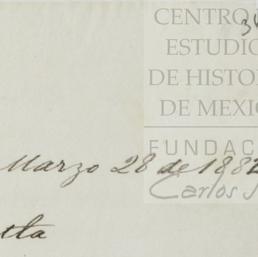 CENTRO
ESTUDIO
DE HISTO
DE MEXI
FUNDAC
Marzo 28 de 1882
Carlos S
tta